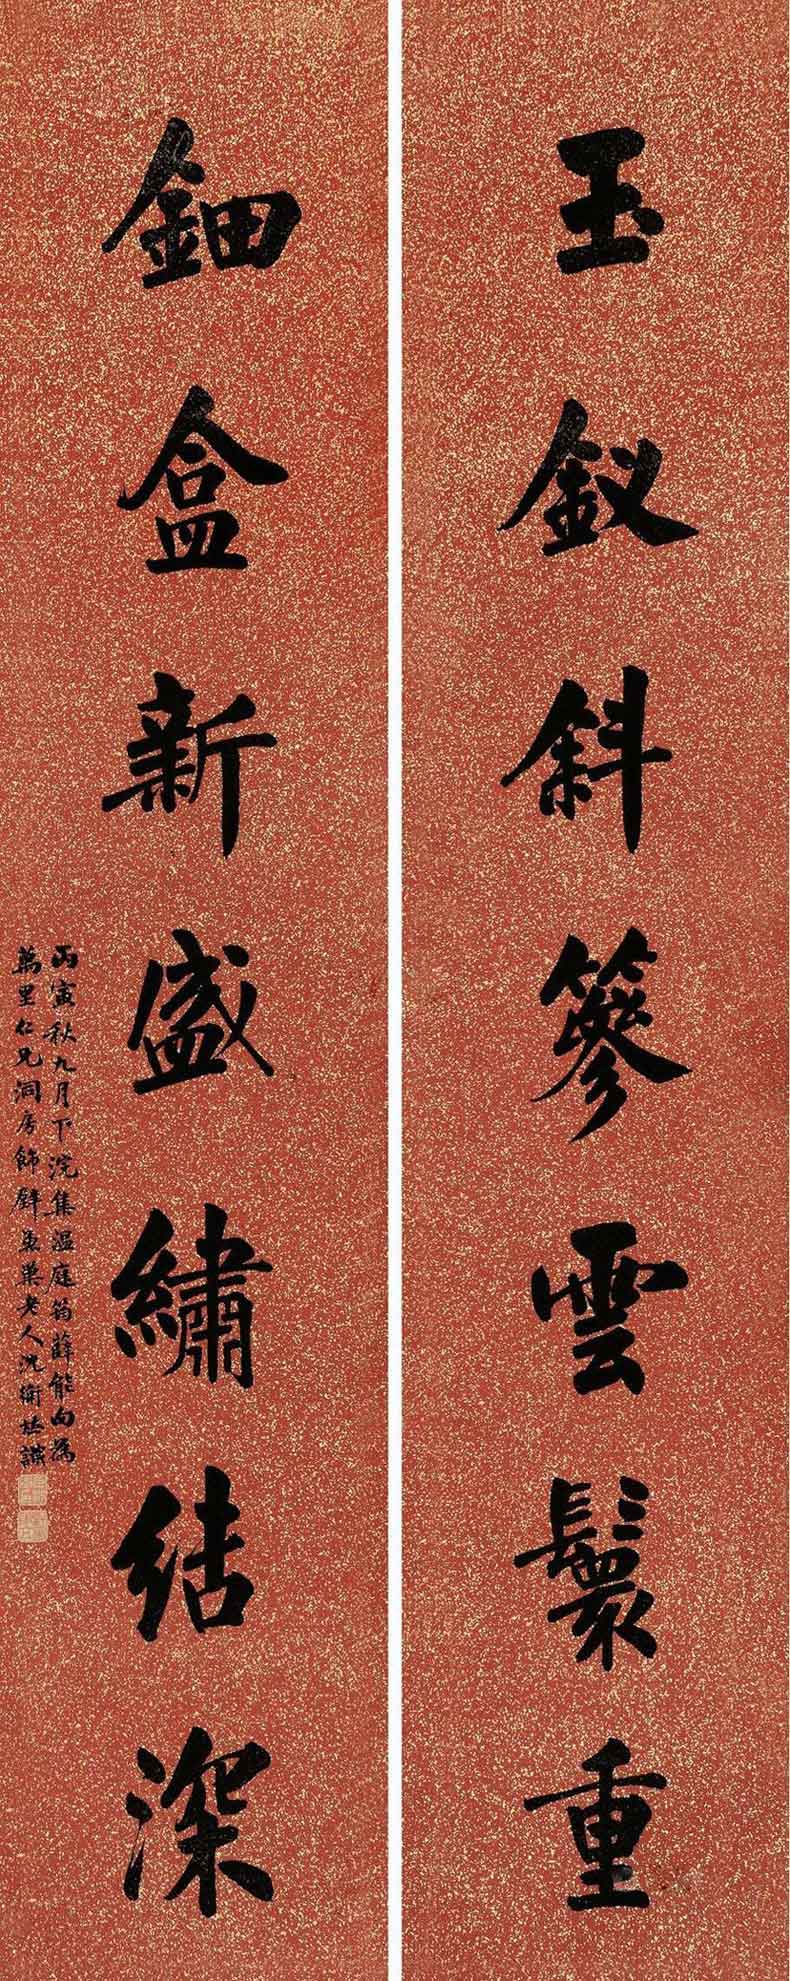 玉釵斜篸雲鬟重
鈿盒新盛繡結深
丙寅秋九月下浣集溫庭筠薛能句為
萬里仁兄洞房飾壁魚巢老人沈衛並識